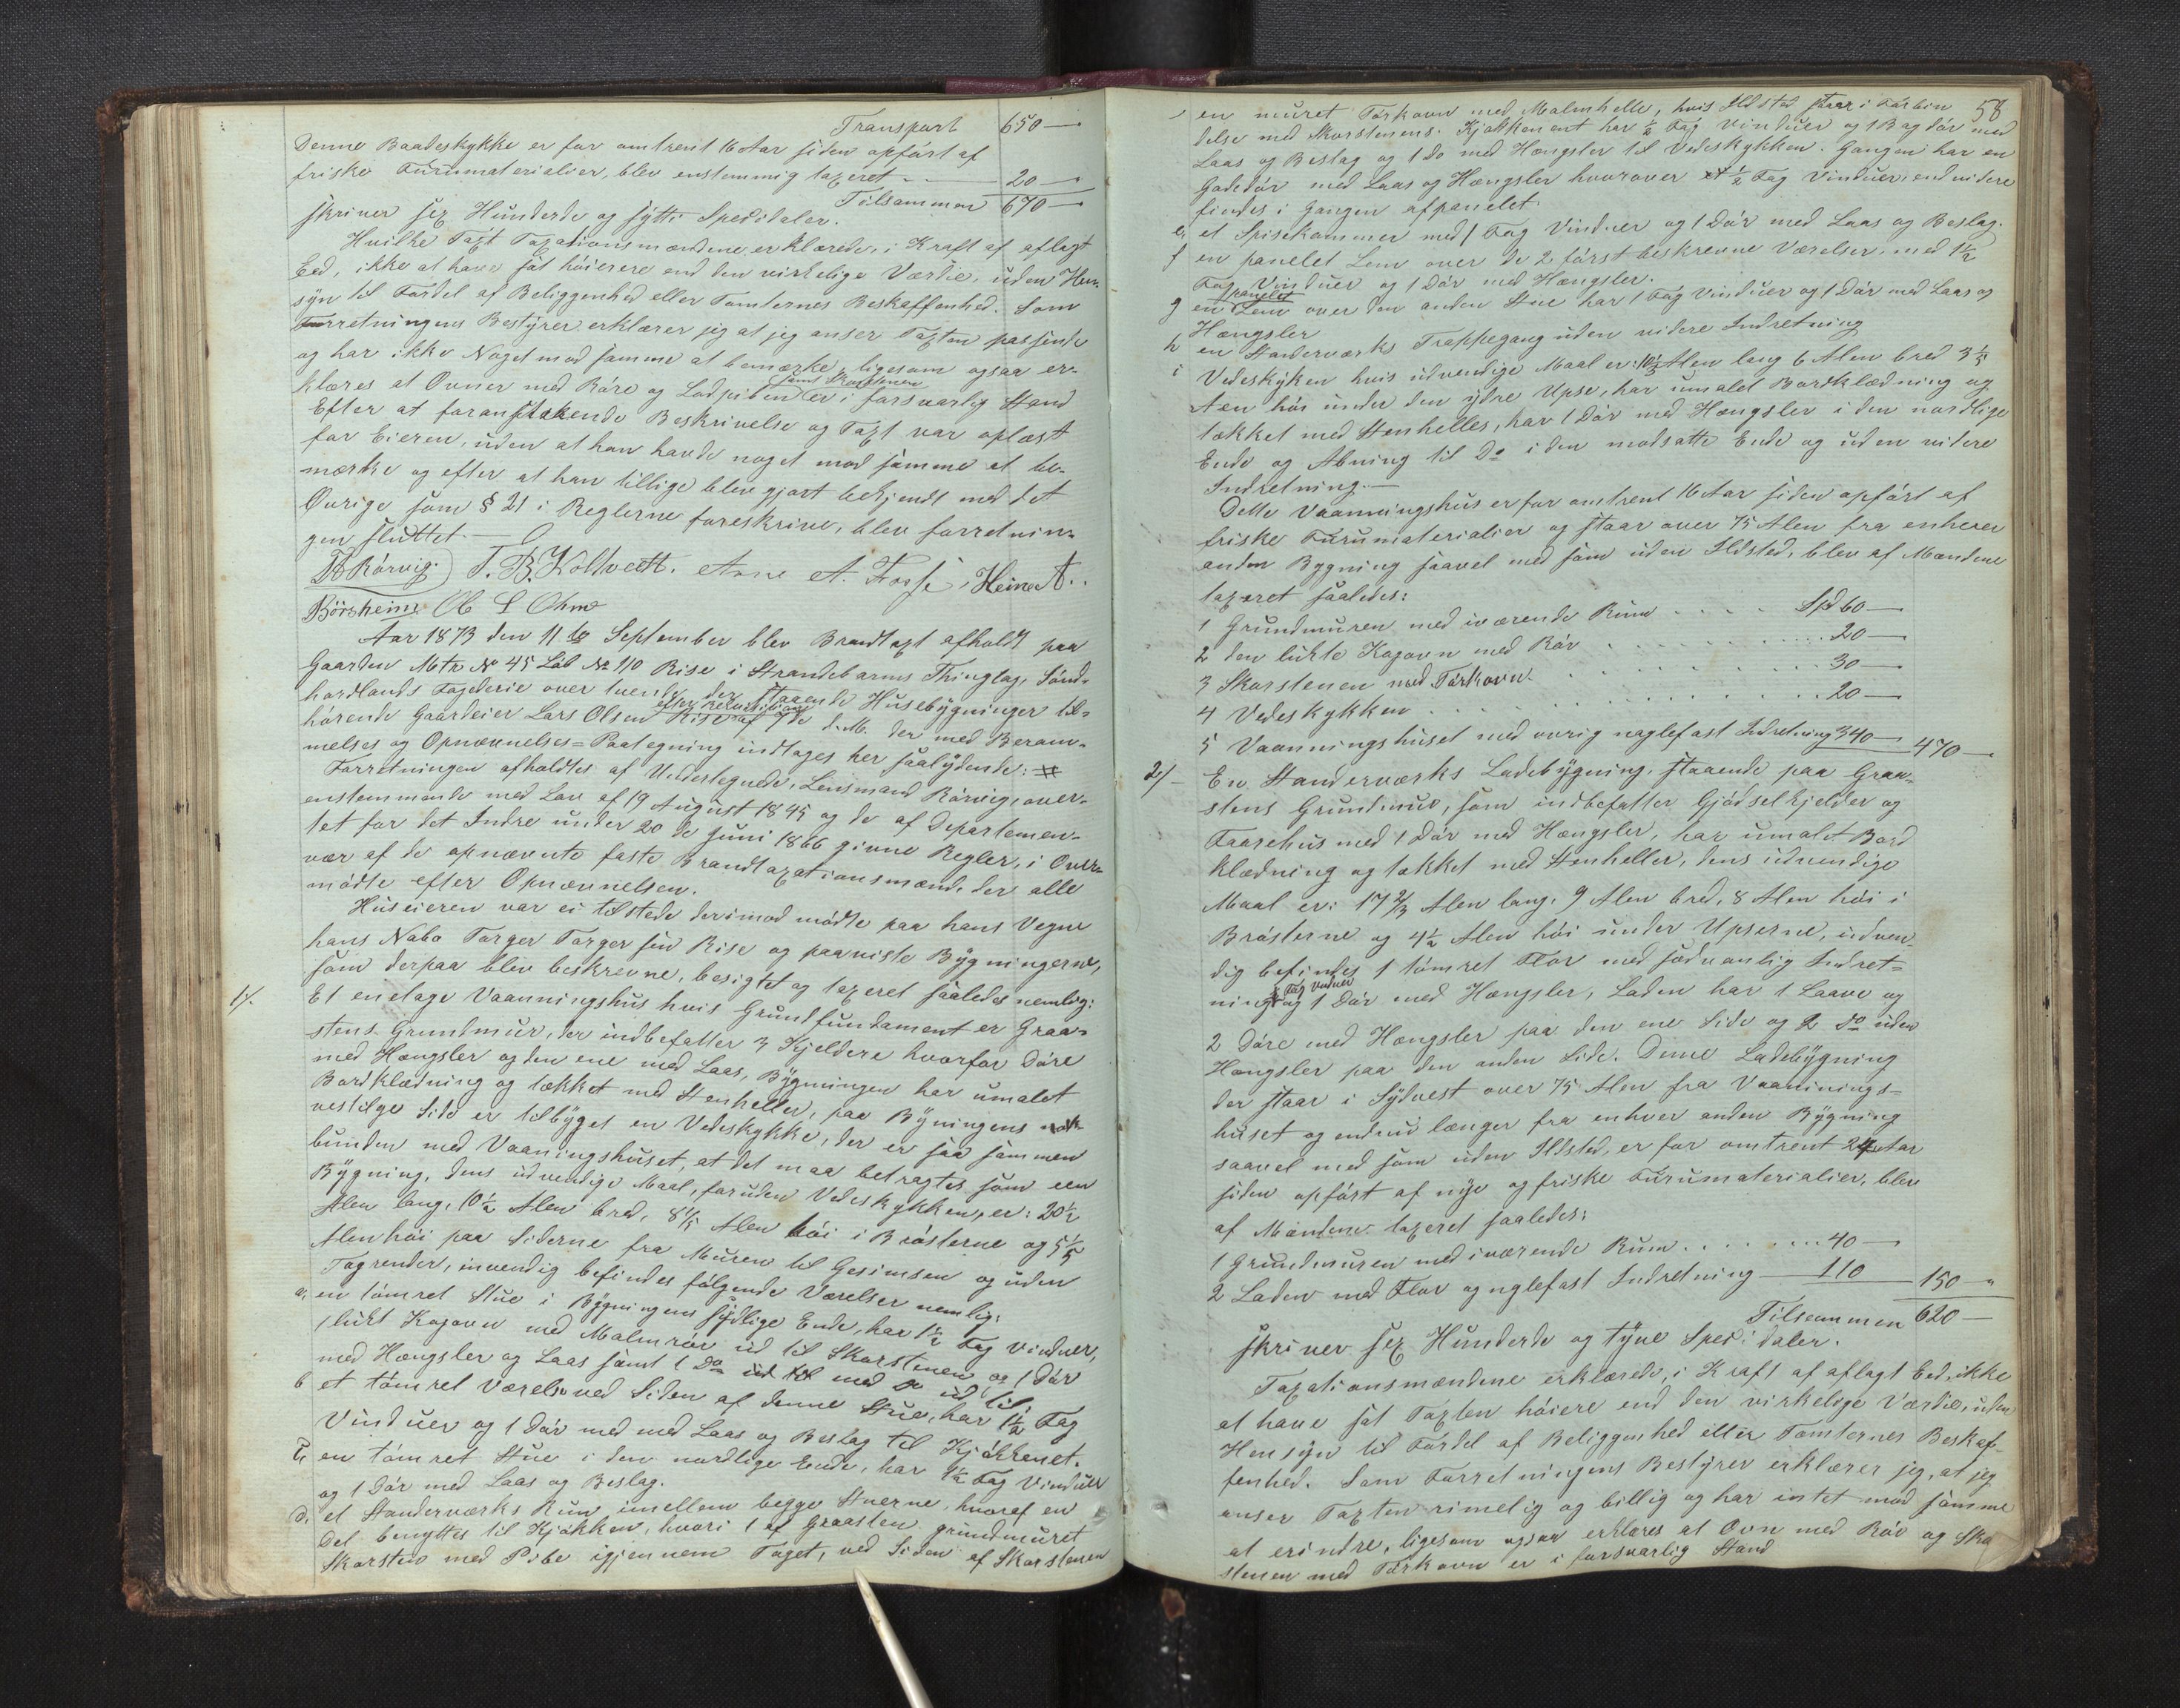 Transport 650 —
Denne Baadeskykke er for omtrent 16 Aar siden opført af
friske Furumaterialier, blev enstemmig taxeret — 20 —
Tilsammen 670 —
skriver sex Hunderde og sytti Speciedaler.
Hvilke Taxt Taxationsmændene erklærede, i Kraft af aflagt
Eed, ikke at have sat høierere end den virkelige Værdie, uden Hen-
syn til Fordel af Beliggenhed eller Tomternes Beskaffenhed. Som
Forretningens Bestyrer erklærer jeg at jeg anser Taxten passende
og har ikke Noget mod samme at bemærke, ligesom ogsaa er-
klæres at Ovner med Røre og Lodpiben samt Skorstenen er i forsvarlig Stand
Efter at foranstaaende Beskrivelse og Taxt var oplæst
for Eieren, uden at han havde noget mod samme at be-
mærke og efter at han tillige blev gjort bekjendt med det
Øvrige som § 21 i Reglerne foreskriver, blev forretnin-
gen sluttet. —
Rørvig. T. B. Koldveett. Arne A. Fosse, Heine A.
Børsheim Ole S Ohma
Aar 1873 den 11te September blev Brandtaxt afholdt paa
Gaarden Mtr No 45 Løb No 110 Rise i Strandebarms Thinglag, Sønd-
hordlands Fogderie over tvende der staaende Husebygninger til-
hørende Gaardeier Lars Olsen Rise efter Rekvisition af 7de d. M. der med Beram-
melses og Opnævnelses=Paategning indtages her saalydende: #
Forretningen afholdtes af Undertegnede, Lensmand Rørvig, over-
enstemmende med Lov af 19 August 1845 og de af Departemen-
tet for det Indre under 20de Juni 1866 givne Regler, i Over-
vær af de opnævnte faste Brandtaxationsmænd, der alle
mødte efter Opnævnelsen.
Huseieren var ei tilstede derimod mødte paa hans Vegne
hans Nabo Torger Torgersen Rise og paaviste Bygningerne,
som derpaa blev beskrevne, besigtet og taxeret saaledes nemlig:
1/. Et enetage Vaanningshus hvis Grundfundament er Graa-
stens Grundmur, der indbefatter 3 Kjeldere hvorfor Døre
med Hængsler og den ene med Laas, Bygningen har umalet
Bordklædning og tækket med Stenheller, paa Bygningens
vestlige Side er tilbyget en Vedeskykke, der er saa sammen
bunden med Vaaningshuset, at det maa betragtes som een
Bygning, dens udvendige Maal, foruden Vedeskykken, er: 20½
Alen lang, 10½ Alen bred, 8 4/5 Alen høi i Brøsterne og 5 1/5
Alen høi paa Siderne fra Muren til Gesimsen og uden
Tagrender, invendig befindes følgende Værelser nemlig:
a, en tømret Stue i Bygningens sydlige Ende, har 1½ Fag Vinduer,
1 lukt Kogovn med Malmrør ud til Skorstenen og 1 Dør
med Hængsler og Laas samt 1 Do ud til med Do ud til
b et tømret Værelse ved Siden af denne Stue, har 1½ Fag
Vinduer og 1 Dør med med Laas og Beslag til Kjøkkenet.
c, en tømret Stue i den nordlige Ende, har 1½ Fag Vinduer
og 1 Dør med Laas og Beslag.
d, et Standerværks Rum imellem begge Stuerne, hvoraf en
Del benyttes til Kjøkken, hvori 1 af Graasten grundmuret
Skorsten med Pibe igjennem Taget, ved Siden af Skorstenen
58
en muret Tørkovn med Malmhelle, hvis Ildsted staar i Forbin
delse med Skorstenens. Kjøkkenet har ½ Fag Vinduer og 1 Bagdør med
Laas og Beslag og 1 Do med Hængsler til Vedeskykken. Gangen har en
Gadedør med Laas og Hængsler hvorover et ½ Fag Vinduer, endvidere
findes i Gangen afpanelet:
e, et Spisekammer med 1 Fag Vinduer og 1 Dør med Laas og Beslag.
f en panelet Lem over de 2 først beskrevne Værelser, med 1½
Fag Vinduer og 1 Dør med Hængsler.
g en panelet Lem over den anden Stue har 1 Fag Vinduer og 1 Dør med Laas og
Hængsler
h en Standerværks Trappegang uden videre Indretning
i Vedeskyken hvis udvendige Maal er: 10⅓ Alen lang 6 Alen bred 3 1/5
Alen høi under den ydre Upse, har umalet Bordklædning og
tækket med Stenhelles, har 1 Dør med Hængsler i den nordlige
Ende og Abning til Do i den modsatte Ende og uden videre
Indretning. —
Dette Vaanningshus er for omtrent 16 Aar siden opført af
friske Furumaterialier og staar over 75 Alen fra enhver
anden Bygning saavel med som uden Ildsted, blev af Mændene
taxeret saaledes:
1 Grundmuren med iværende Rum . . . . Spd 60 —
2 den lukte Kogovn med Rør . . . . . . . 20 —
3 Skorstenen med Tørkovn . . . . . . . 30 —
4 Vedeskykken . . . . . . . . . . 20 —
5 Vaanningshuset med øvrig naglefast Indretning 340 — 470 —
2/ — En Standerværks Ladebygning, staaende paa Graa-
stens Grundmur, som indbefatter Gjødselkjelder og
Faarehus med 1 Dør med Hængsler, har umalet Bord
klædning og tækket med Stenheller, dens udvendige
Maal er: 17⅔ Alen lang, 9 Alen bred, 8 Alen høi i
Brøsterne og 4½ Alen høi under Upserne, udven-
dig befindes 1 tømret Flor med sædvanlig Indret-
ning Fag Vinduer og 1 Dør med Hængsler, Laden har 1 Laave og
2 Døre med Hængsler paa den ene Side og 2 Do uden
Hængsler paa den anden Side. Denne Ladebygning
der staar i Sydvest over 75 Alen fra Vaannings-
huset og endnu længer fra enhver anden Bygning
saavel med som uden Ildsted, er for omtrent 24 Aar
siden opført af nye og friske Furumaterialier, blev
af Mændene taxeret saaledes:
1 Grundmuren med iværende Rum . . . . . . . 40 —
2 Laden med Flor og nglefast Indretning — 110 150 — "
Tilsammen 620 —
skriver sex Hunderde og tyve Speciedaler.
Taxationsmændene erklærede, i Kraft af aflagt Eed, ikke
at have sat Taxten høiere end den virkelige Værdie, uden
Hensyn til Fordel af Beliggenhed eller Tomternes Beskaf-
fenhed. Som Forretningens Bestyrer erklærer jeg, at jeg
anser Taxten rimelig og billig og har intet mod samme
at erindre, ligesom ogsaa erklæres at Ovn med Rør og Sko
stenen med Tørkovn er i forsvarlig Stand